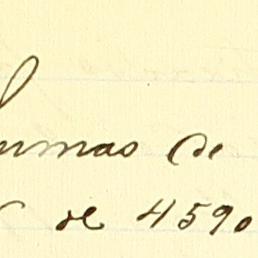 sumas de
de 4590